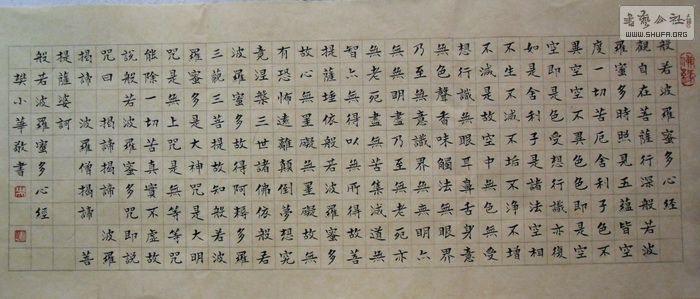 般若波羅蜜多心經
觀自在菩薩行深般若波
羅蜜多時照見五蘊皆空
度一切苦厄舍利子色不
異空空不異色色即是空
空即是色受想行識亦復
如是舍利子是諸法空相
不生不滅不垢不淨不增
不減是故空中無色無受
想行識無眼耳鼻舌身意
無色聲香味觸法無眼界
乃至無意識界無無明亦
無無明盡乃至無老死亦
無老死盡無苦集滅道無
智亦無得以無所得故菩
提薩埵依般若波羅蜜多
故心無罣礙無罣礙故無
有恐怖遠離顛倒夢想究
竟涅槃三世諸佛依般若
波羅蜜多故得阿耨多羅
三藐三菩提故知般若波
羅蜜多是大神咒是大明
咒是無上咒是無等等咒
能除一切苦真實不虛故
說般若波羅蜜多咒即說
咒曰 揭諦揭諦 波羅
揭諦 波羅僧揭諦 菩
提薩婆訶
般若波羅蜜多心經
樊小華敬書
书艺公社
WWW.SHUFA.ORG